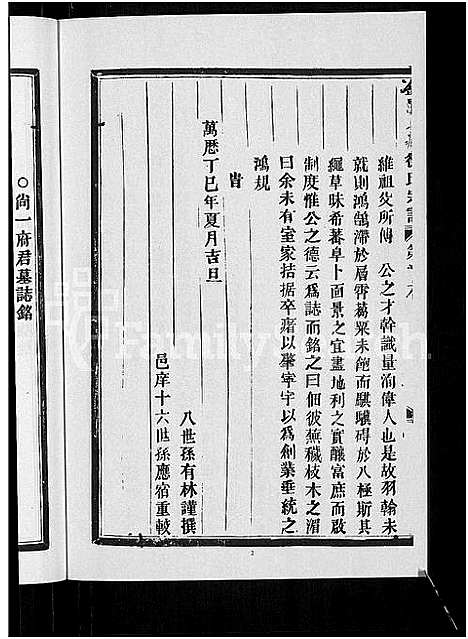 維祖父所傳　公之才幹識量洵偉人也是故羽翰未
就則鴻鵠滯於層霄葛粟未飽而騏驥碍於八極斯其
繩草昧希蕃阜卜面景之宜盡地利之實釀富庶而啟
制度惟公之德云爲誌而銘之曰佃彼蕪穢枝木之湄
曰余未有室家拮据卒瘏以肇宇以爲創業垂統之
鴻規
旹
萬歷丁巳年夏月吉旦
八世孫有林謹撰
邑庠十六世孫應宿重較
○尙一府君墓誌銘
FamilySearch
2